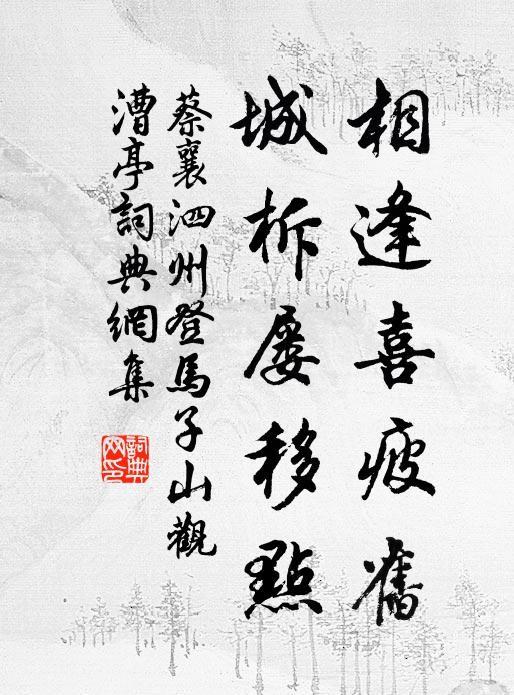 相逢喜疲舊
城柝屡移點
蔡襄泗州登馬子山觀
漕亭詞典網集
詞典網印